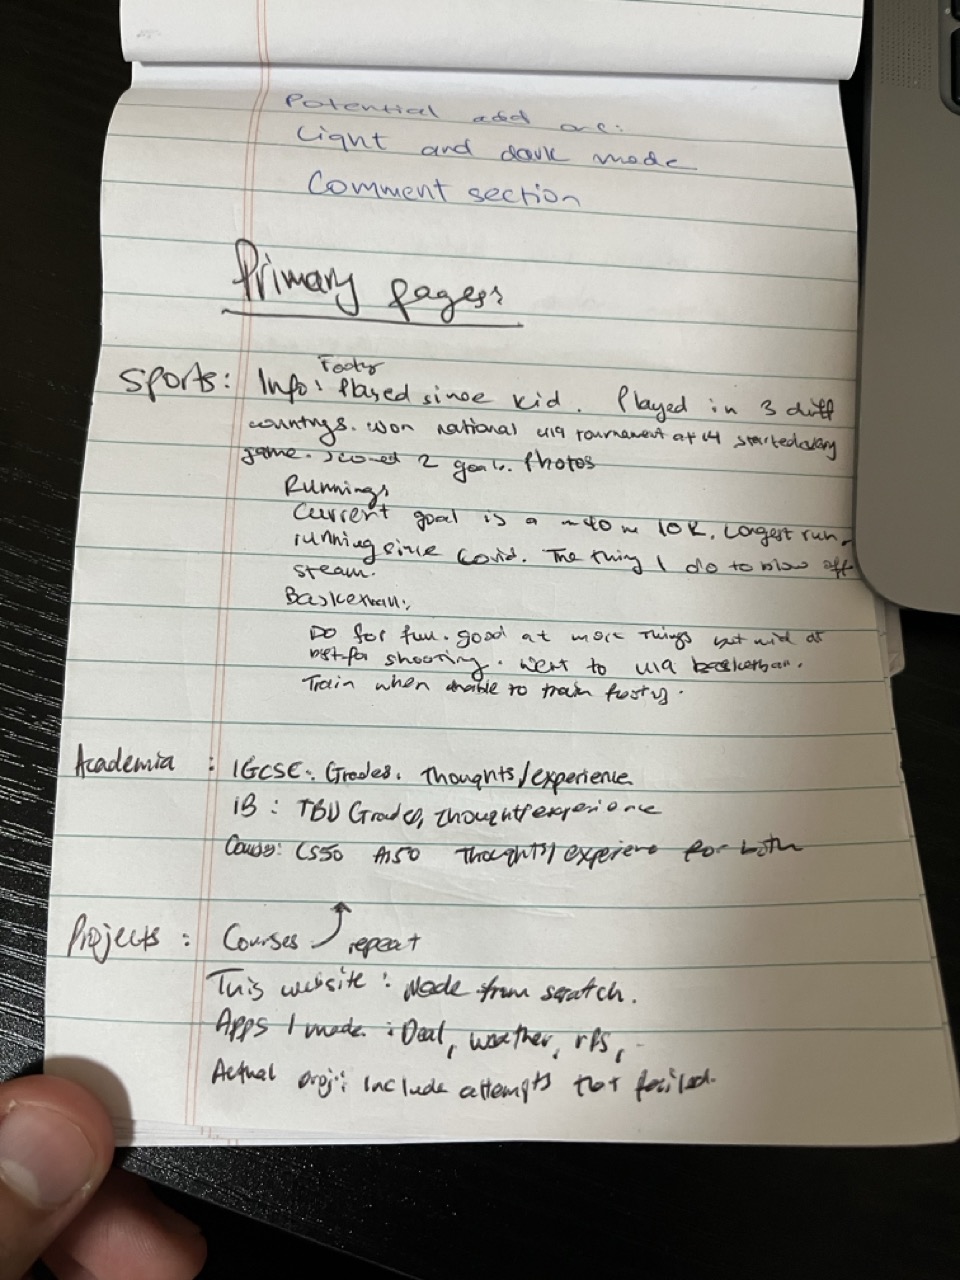 Potential add are:
Light and dark mode
Comment section
Primary pages:
Footy
Sports: Info: Played since kid. Played in 3 diff
countrys. won national u19 tournament at 14 started every
game. scored 2 goals. Photos
Running:
Current goal is a 40 m 10K. Longest run.
running since Covid. The thing I do to blow off
steam.
Basketball:
Do for fun. good at most things but mid at
best for shooting. Went to u19 basketball.
Train when unable to train footy.
Academia : IGCSE: Grades. Thoughts/experience
IB : Grades, thoughts/experience
CS50 thoughts/experience for both
Projects : Courses repeat
This website : Made from scratch.
Apps I made : Deal, weather, rps,
Actual proj: include attempts that failed.